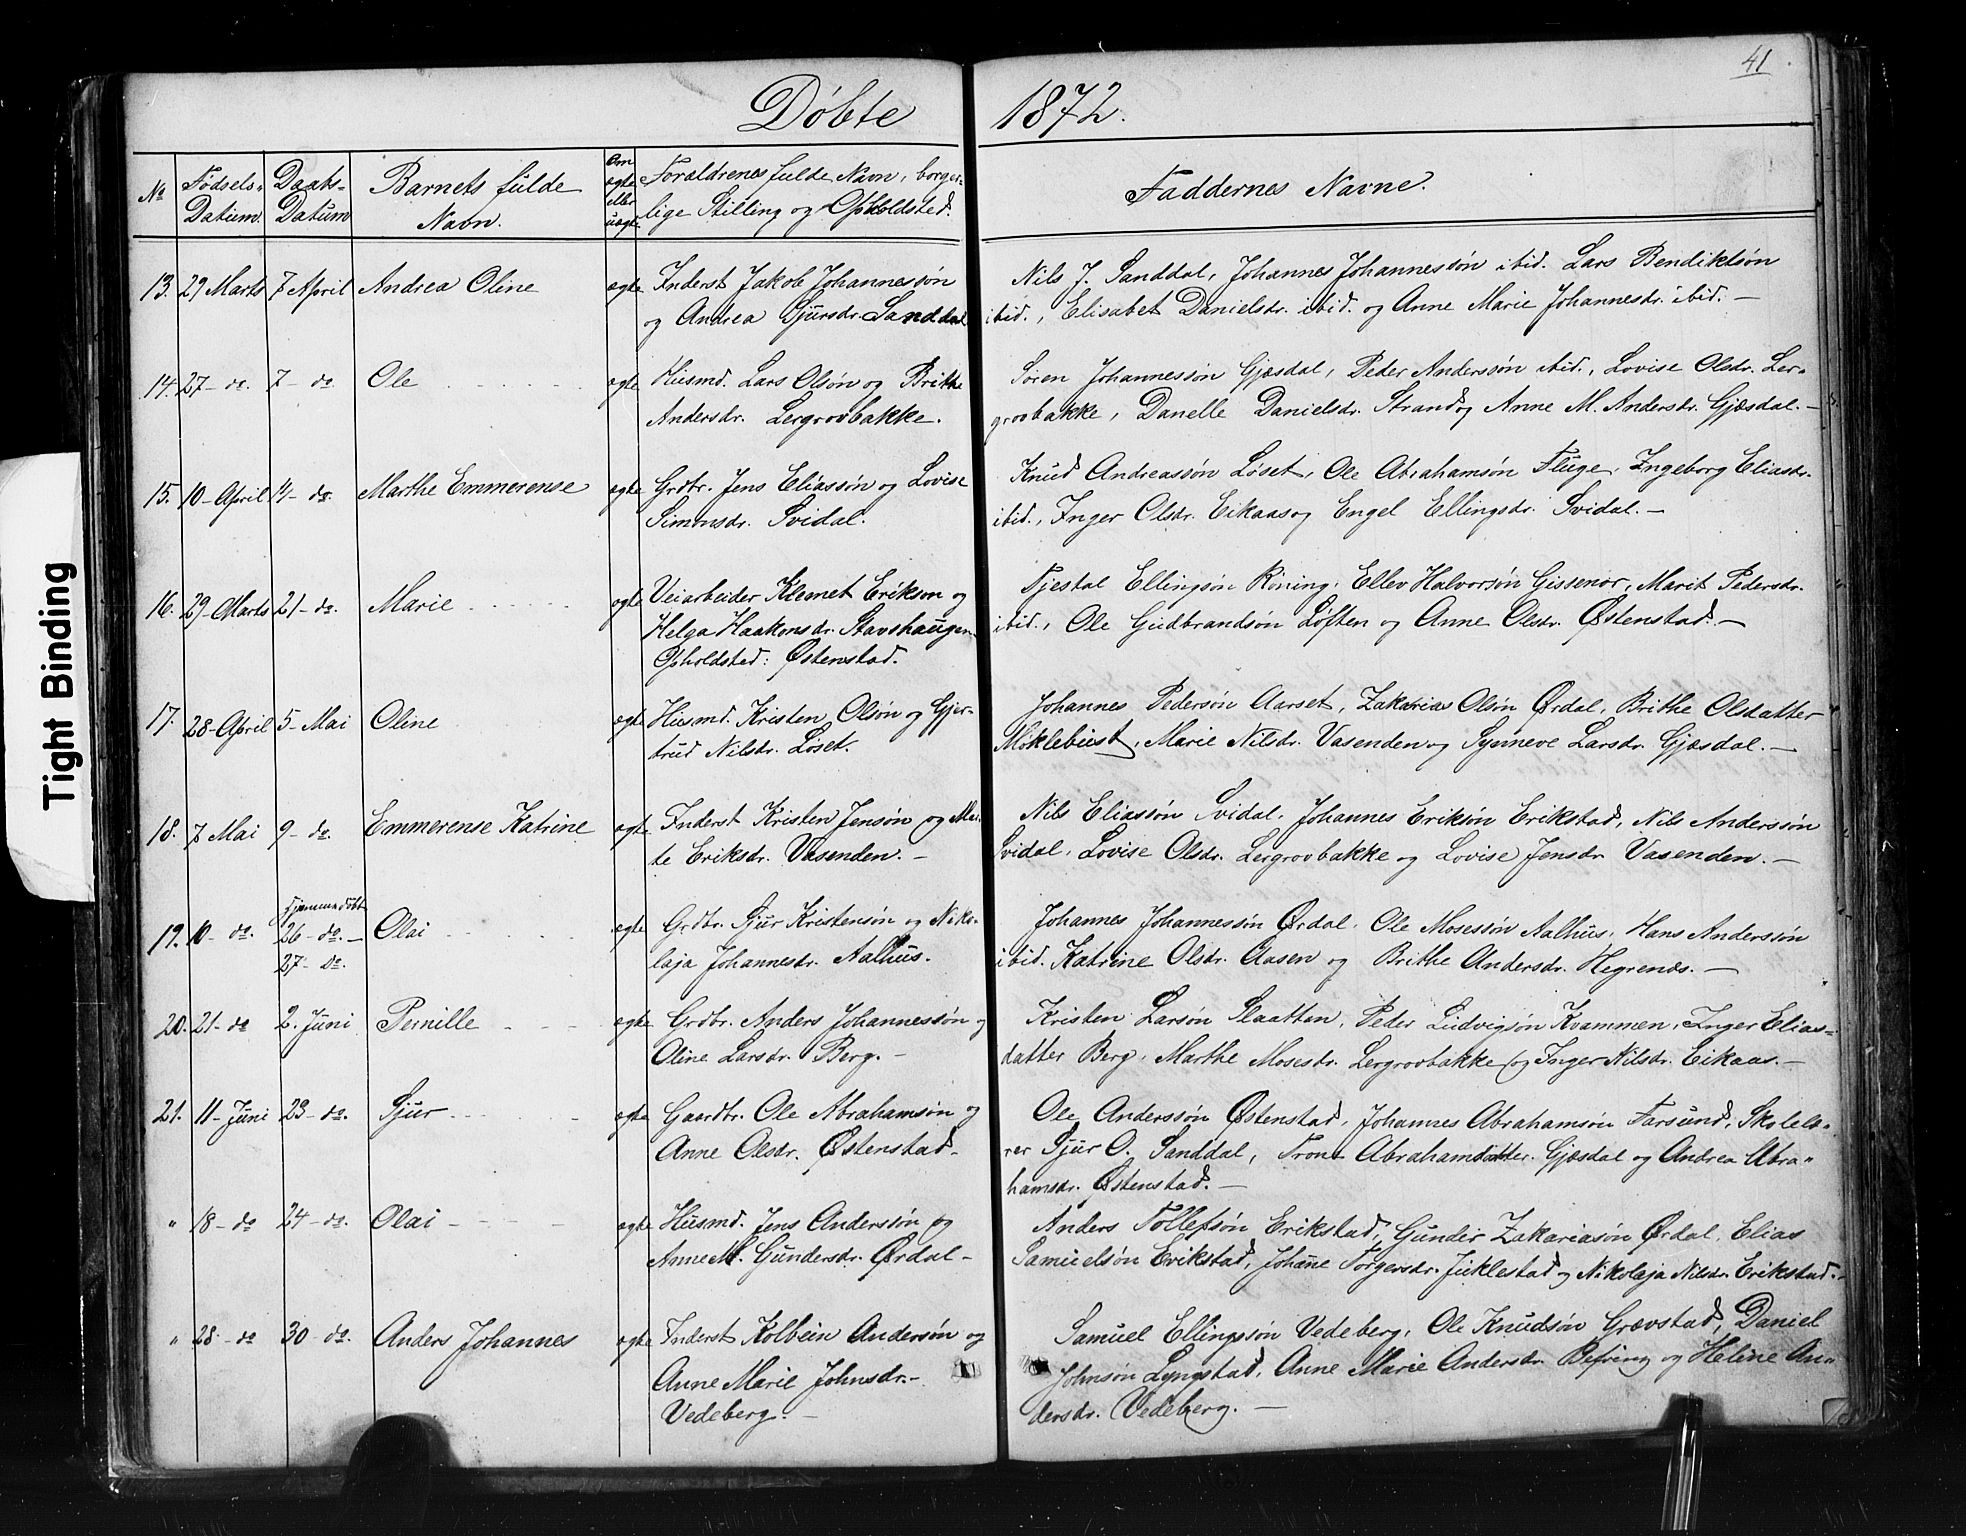 41
Døbte 1872.
No
Fødsels-
Datum
Daabs-
Datum
Barnets fulde
Navn.
Om
ægte
eller
uægte
Forældrenes fulde Navn, borger-
lige Stilling og Opholdsted.
Faddernes Navne.
13. 29 Marts 7 April Andrea Oline ægte Inderst Jakob Johannessøn
og Andrea Sjursdr. Sanddal
Nils J. Sanddal, Johannes Johannessøn ibid. Lars Bendiktsøn
ibid., Elisabet Danielsdr. ibid. og Anne Marie Johannesdr. ibid. —
14. 27 - do. 7 - do. Ole ægte Husmd. Lars Olsøn og Brithe
Andersdr. Lergrovbakke.
Søren Johannessøn Gjæsdal, Peder Anderssøn ibid., Lovise Olsdr. Ler-
grovbakke, Danelle Danielsdr. Strand og Anne M. Andersdr. Gjæsdal. —
15. 10 - April 11 - do. Marthe Emmerense ægte Grdbr. Jens Eliassøn og Lovise
Simonsdr. Svidal.
Knud Andreassøn Løset, Ole Abrahamsøn Fluge, Ingeborg Eliasdr.
ibid., Inger Olsdr. Eikaas og Engel Ellingsdr. Svidal. —
16. 29 - Marts 21 - do. Marie ægte Veiarbeider Klemet Eriksøn og
Helga Haakonsdr. Stavshaugen
Opholdsted: Østenstad.
Tjestal Ellingsøn Røning, Ellev Halvorsøn Gissenor, Marit Pedersdr.
ibid., Ole Gudbrandsøn Løften og Anne Olsdr. Østenstad. —
17. 28 - April 5 - Mai Oline ægte Husmd. Kristen Olsøn og Gjer-
trud Nilsdr. Løset.
Johannes Pedersøn Aarset, Zakarias Olsøn Ørdal, Brithe Olsdatter
Møklebust, Marie Nilsdr. Vasenden og Synneve Larsdr. Gjæsdal. —
18. 7 Mai 9 - do. Emmerense Katrine ægte Inderst Kristen Jensøn og Ma-
te Eriksdr. Vasenden. —
Nils Eliassøn Svidal, Johannes Eriksøn Erikstad, Nils Anderssøn
Svidal, Lovise Olsdr. Lergrovbakke og Lovise Jensdr. Vasenden. —
19. 10 - do. Hjemmedøbt
26 - do. —
27 - do. Olai ægte Grdbr. Sjur Kristensøn og Niko-
laja Johannesdr. Aalhus.
Johannes Johannessøn Ørdal, Ole Mosessøn Aalhus, Hans Anderssøn
ibid. Katrine Olsdr. Aasen og Brithe Andersdr. Hegrenæs. —
20. 21 - do 2. Juni Pernille ægte Grdbr. Anders Johannessøn og
Oline Larsdr. Berg. —
Kristen Larsøn Slaatten, Peder Ludvigsøn Kvammen, Inger Elias-
datter Berg, Marthe Mosesdr. Lergrovbakke og Inger Nilsdr. Eikaas. —
21. 11 - Juni 23 - do. Sjur ægte Gaardbr. Ole Abrahamsøn og
Anne Olsdr. Østenstad.
Ole Anderssøn Østenstad, Johannes Abrahamsøn Farsund, Skolelæ-
rer Sjur O. Sanddal, Trone Abrahamsdatter Gjæsdal og Andrea Abra-
hamsdr. Østenstad. —
" 18 - do 24 - do. Olai ægte Husmd. Jens Anderssøn og
Anne M. Gundersdr. Ørdal —
Anders Tollefsøn Erikstad, Gunder Zakariasøn Ørdal, Elias
Samuelsøn Erikstad, Johanne Torgersdr. Fuklestad og Nikolaja Nilsdr. Erikstad. —
" 28. - do 30 - do. Anders Johannes ægte Inderst Kolbein Andersøn og
Anne Marie Johnsdr. —
Vedeberg. —
Samuel Ellingssøn Vedeberg, Ole Knudsøn Grævstad, Daniel
Johnsøn Lyngstad, Anne Marie Andersdr. Befring og Heline An-
dersdr. Vedeberg. —
Tight Binding